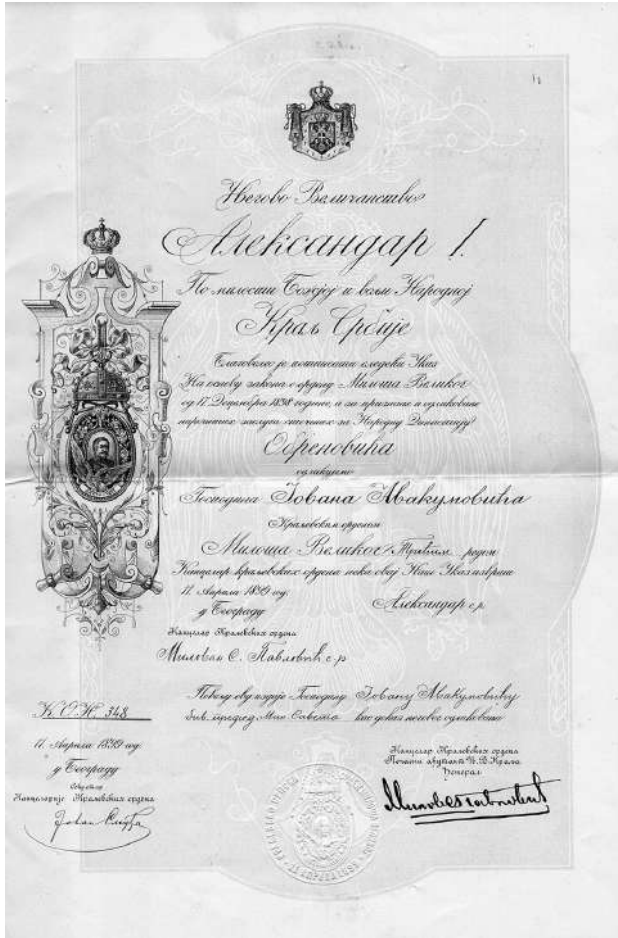 Његово Величанство
Александар I.
По милости Божјој и вољи Народној
Краљ Србије
Благоволео је потписати следећи Указ
На основу закона о ордену Милоша Великог
од 17. Децембра 1898 године, а за признање и одликовање
нарочитих заслуга стечених за Народну Династију
Обреновића
одликујемо
Господина Јована Авакумовића
Краљевским орденом
Милоша Великог Трећим редом
Канцелар краљевских ордена нека овај Наш Указ изврши
11. Априла 1899 год.
у Београду
Александар с.р.
Канцелар Краљевских ордена
Милован С. Павловић с.р
Повељу ову издаје Господину Јовану Авакумовићу
бив. председ. Мин. Савета као доказ његовог одликовања
К.О.№ 348
11. Априла 1899 год.
у Београду
Секретар
Канцеларије Краљевских ордена
Канцелар Краљевских ордена
Почасни ађутант Њ. В. Краља
Ђенерал